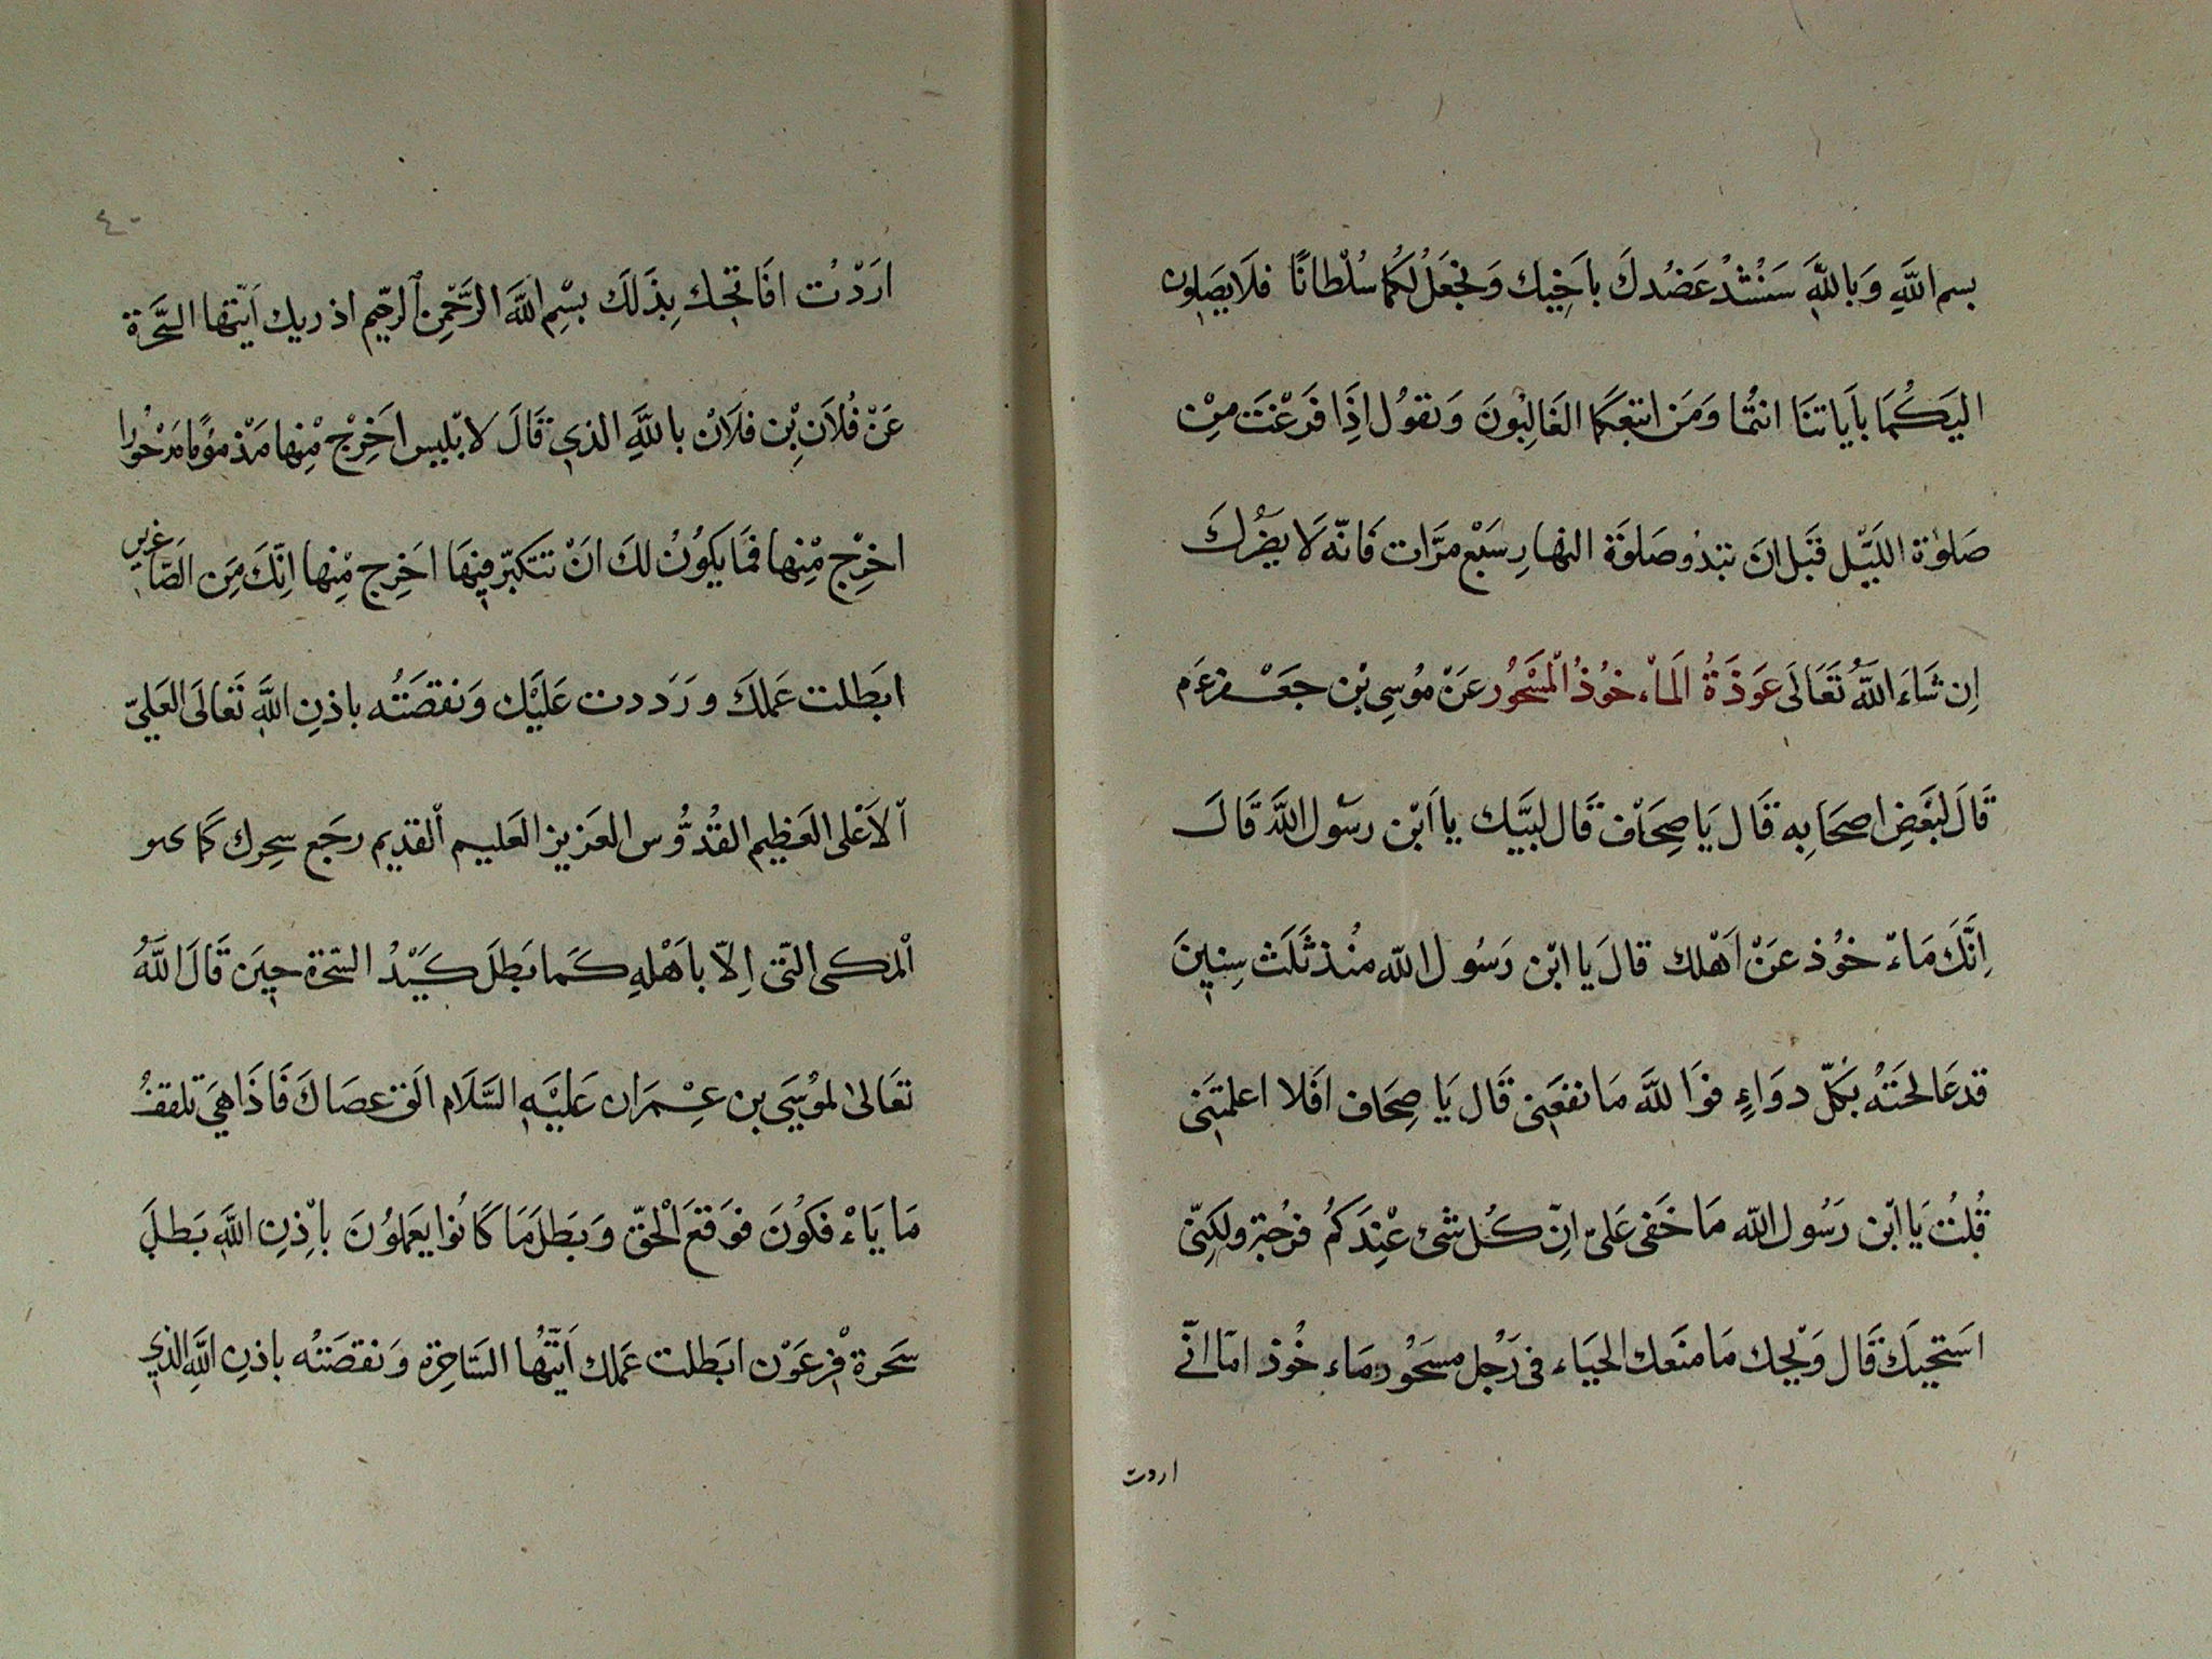 بسم اللَّهِ وَبِاللَّهِ سَنَشُدُّ عَضُدَكَ بِاَخِيك وَنَجْعَلُ لَكُمَا سُلْطَانًا فَلَا يَصِلُون
اليَكُمَا بِاَيَاتنَا انتُمَا وَمَنِ اتبَعَكُمَا الغَالِبُونَ وَتقوُل اِذَا فَرَغْتَ مِنْ
صَلٰوةِ اللَيْل قَبْل انَ تبَدُو صَلوٰةَ النهارِ سَبْع مرَّات فَانّه لَا يضُرُّكَ
اِن شَاءَ اللَّهُ تَعَالَى عَوذَةُ الَماْء خوُذُ الْمَسْحُور عَنْ مُوسِى بْن جَعْفر عَم
قَالَ لبَعْضِ اصحَابِه قَال يَا صِحَاف قَال لبَيَّك يا اَبْن رسَول اللَّهَ قَالَ
اِنَّكَ مَاءْ خوُذ عَنْ اَهْلك قالَ يَا ابْن رَسُول اللّه منُذ ثَلَث سِنِينَ
قد عَالجَتهُ بكَلّ دوَاءٍ فوَاللَّه مَا نفعَنِى قَال يَا صِحَاف افَلا اعلمتَنِى
قُلتُ يَا ابْن رَسُول اللّه مَا خَفى عَلىّ اِنّ كُل شَئ عْندَكمُ فرَجُه ولكِنّى
اسَتحييَكَ قَال وَيْحِك مَا منَعَك الحيَاء فى رَجُل مسحَوُر مَاء خُوذ امَا انّى
اردت
٤٠
ارَدْتُ افَاتِحك بِذَلَك بسْمِ اللَّهَ الرَّحْمِن الرحّيم اذ ريك اَيّتها السَّحَرة
عَنْ فُلَانِ بْنِ فلَانْ باللَّهِ الذي قَالَ لابْليس اخَرِجْ مْنِها مَذْموُمًا مَدْحوُرا
اخرِجْ مْنِها فمَا يَكوُنُ لكَ انَ تتكَبّر فِيهَا اخَرِج مْنِها انّكَ مَن الصَّاغرين
ابَطلت عَملكَ وَرَددت عَليَك وَنقضَتُه باذنِ اللَّهِ تَعالَى العَليّ
اْلاَعْلى العَظِيم القُدُّوس العَزيز العَليم اْلقديم رجَع سِحرك كَما
اْلمَكى السّئ اِلّا باَهْلهِ كَما بَطلَ كَيْدُ السّحَرة حيِنَ قَالَ اللَّهُ
تعَالىٰ لموُسَى بن عِمْرَان عَليَه السَّلَام القَ عصَاكَ فَاذَا هَى تَلقفُ
مَا يَاءْ فكوُنَ فوَقعَ الْحقّ وَبَطلَ مَا كَانوُا يعمَلوُنَ باِْذنِ اللَّهِ بَطلَ
سَحرة فِرعَوْن ابَطلت عَملك اَيّتُها السَّاحِرة وَنقضَتُه باذنِ اللَّهِ الذي